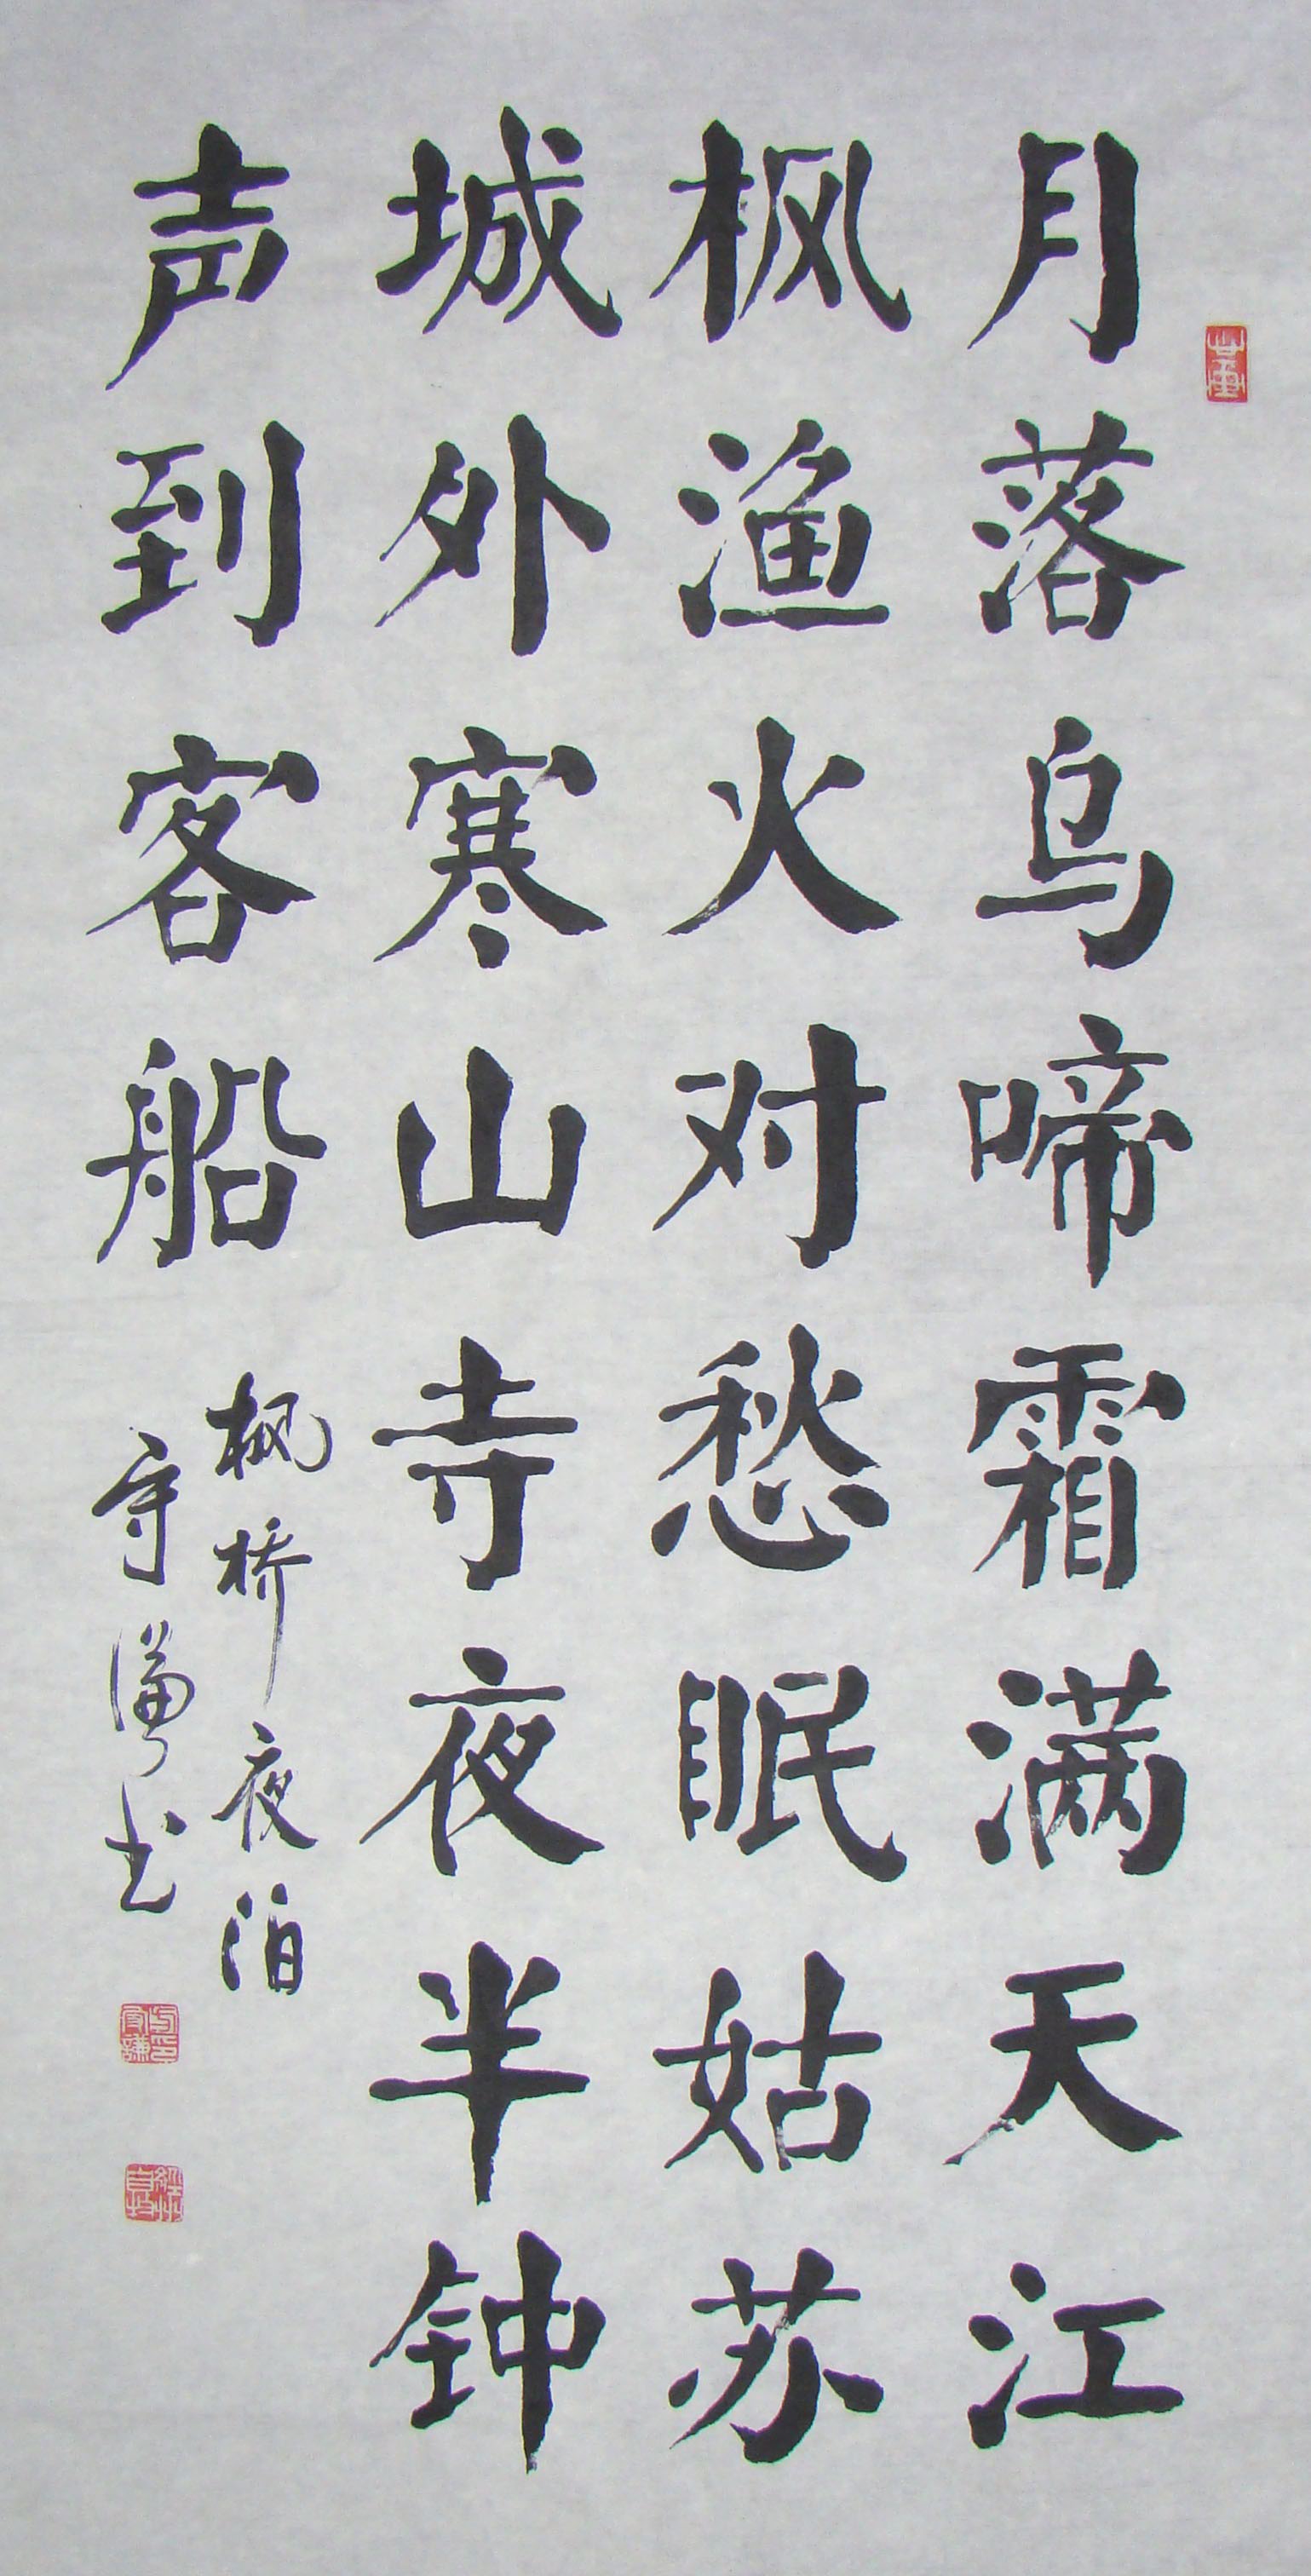 月落乌啼霜满天江
枫渔火对愁眠姑苏
城外寒山寺夜半钟
声到客船
枫桥夜泊
守谦书